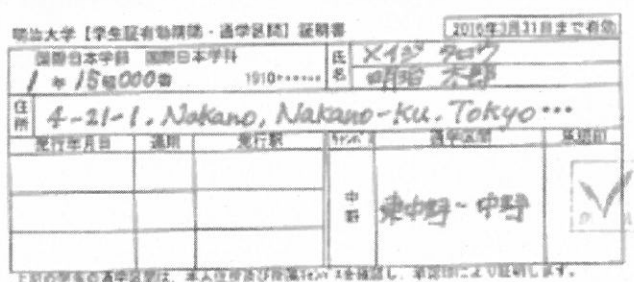 明治大学【学生証有効期間・通学区間】証明書
2016年3月31日まで有効
国際日本学部 国際日本学科
1年15組000番 1910******
氏名 メイジ タロウ
明治 太郎
住所 4-21-1, Nakano, Nakano-Ku, Tokyo…
発行年月日 通用 発行駅 キャンパス 通学区間 承認印
中野 東中野~中野
上記の学生の通学区間は、本人住所及び所属キャンパスを確認し、承認印により証明します。